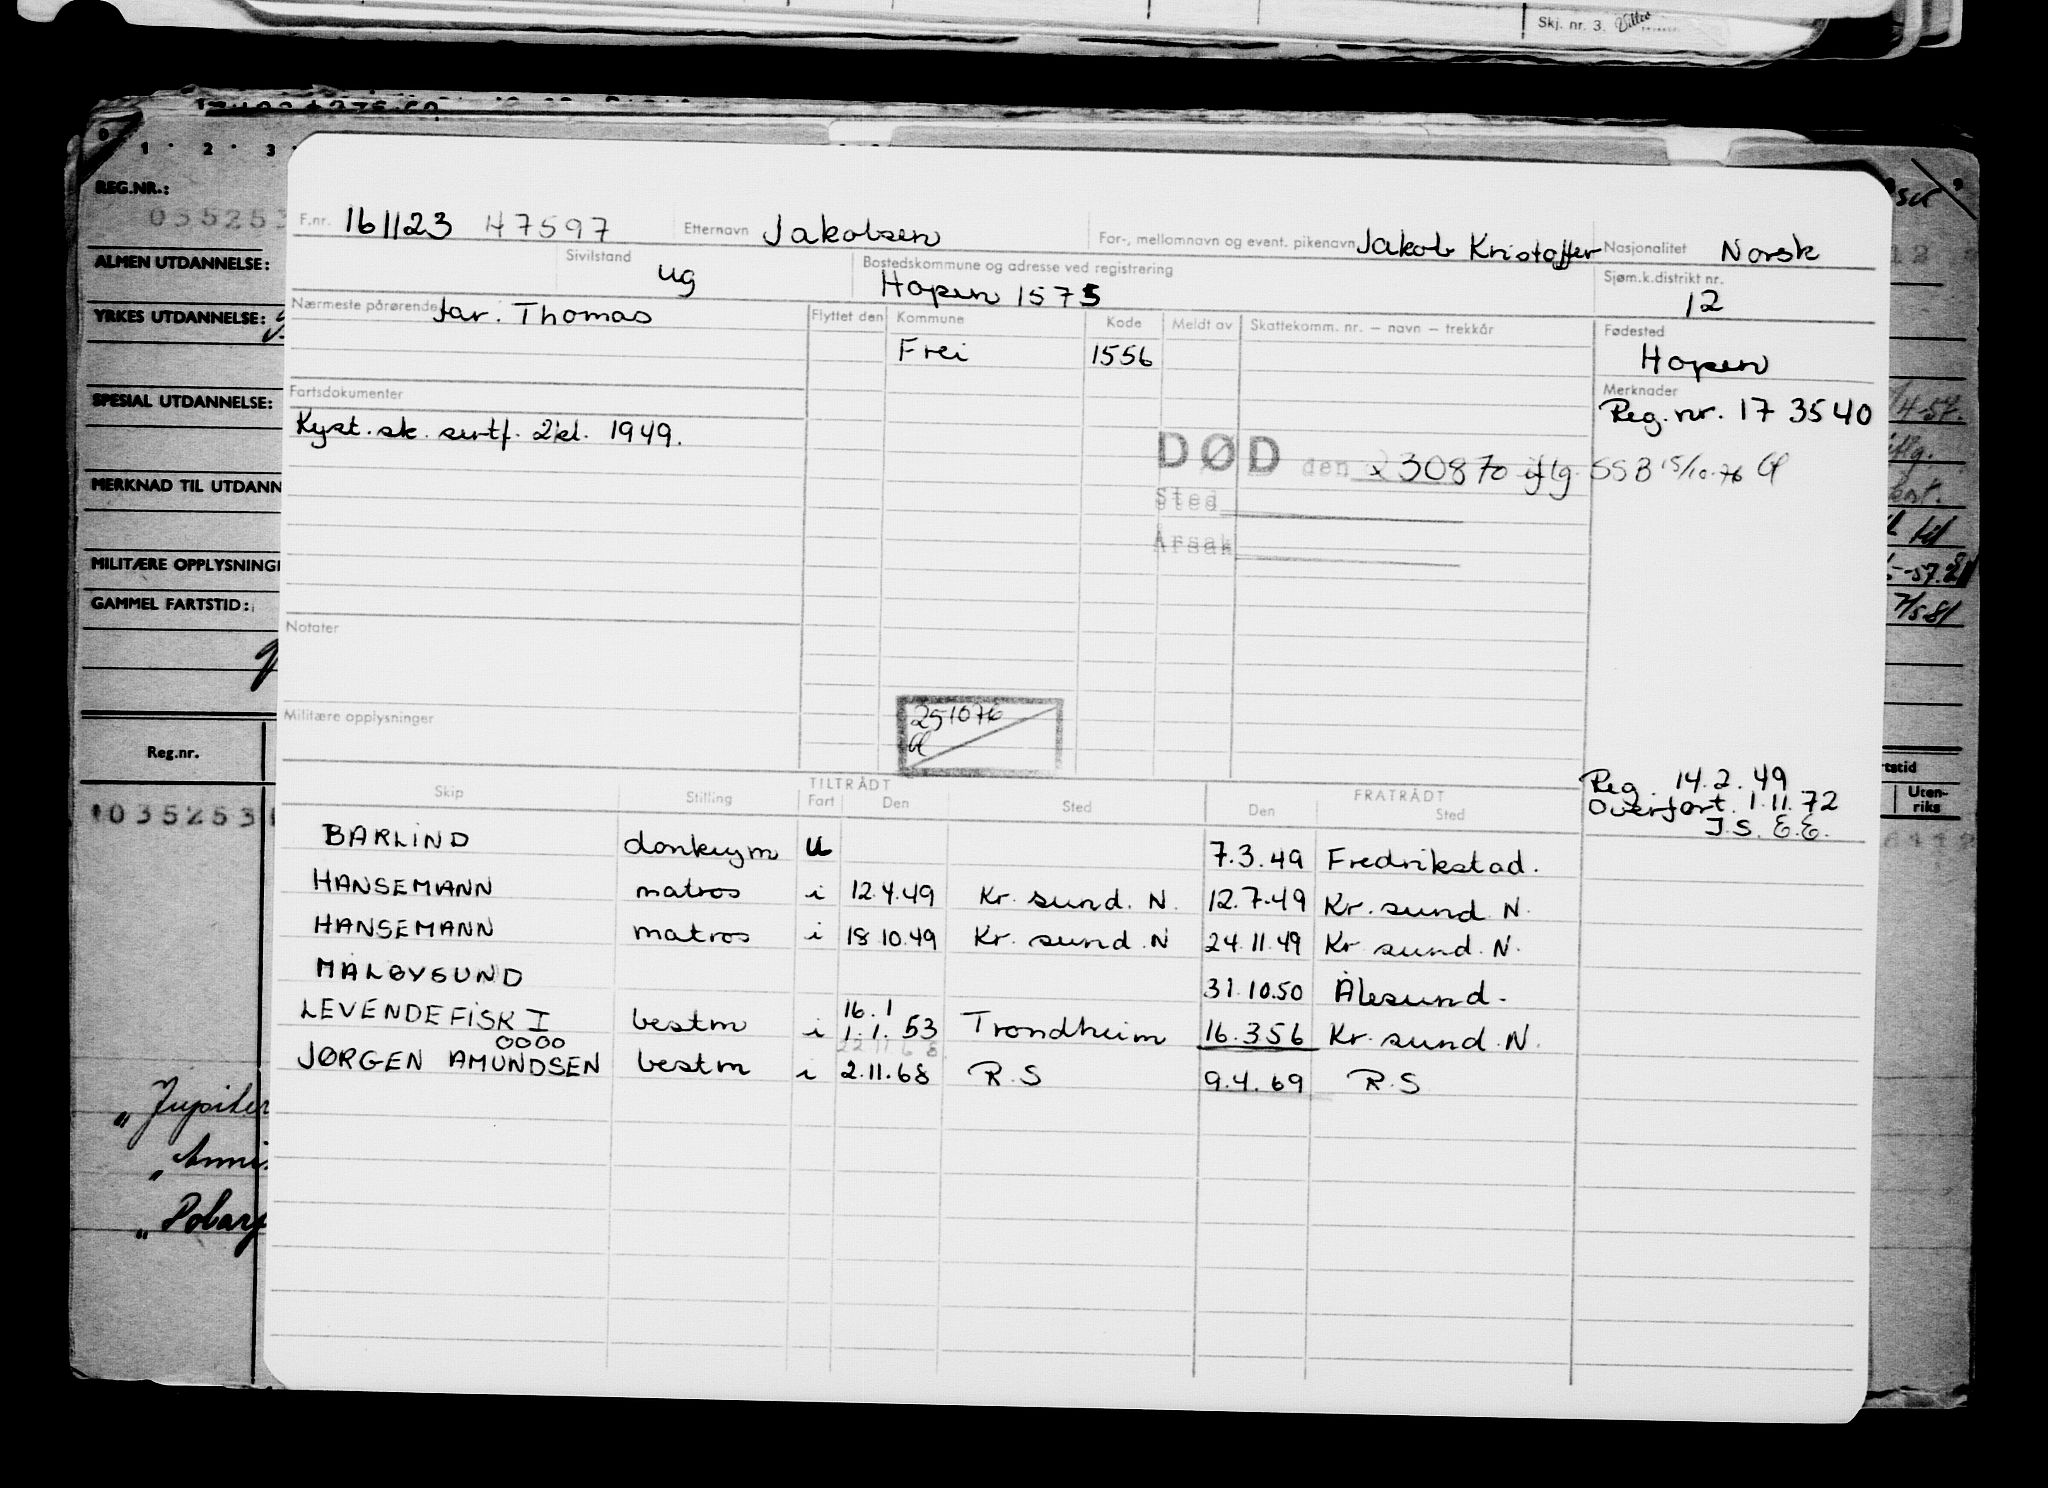 Skj. nr. 3.
0
1 · 2 · 3
REG.NR.:
035253
ALMEN UTDANNELSE:
YRKES UTDANNELSE:
SPESIAL UTDANNELSE:
MERKNAD TIL UTDANN
MILITÆRE OPPLYSNING
GAMMEL FARTSTID:
Reg.nr.
035253
„Jupiter
F.nr. 161123 47597 Etternavn Jakobsen For-, mellomnavn og event. pikenavn Jakob Kristoffer Nasjonalitet Norsk
Sivilstand ug Bostedskommune og adresse ved registrering Hopen 1575 Sjøm.k.distrikt nr. 12
Nærmeste pårørende far. Thomas Flyttet den Kommune Kode Meldt av Skattekomm. nr. – navn – trekkår Fødested
Frei 1556 Hopen
Fartsdokumenter Merknader
Kyst.sk. sertf. 2kl. 1949. Reg. nr. 17 3540
DØD den x 230870 iflg. SSB 15/10-76
Sted
Årsak
Notater
Militære opplysninger
251076
Reg. 14.2.49
Overført. 1.11.72
J.S. E.E.
TILTRÅDT FRATRÅDT
Skip Stilling Fart Den Sted Den Sted
BARLIND donkeym u 7.3.49 Fredrikstad.
HANSEMANN matros i 12.4.49 Kr. sund. N. 12.7.49 Kr. sund N.
HANSEMANN matros i 18.10.49 Kr. sund. N 24.11.49 Kr. sund. N.
MÅLØYSUND 31.10.50 Ålesund.
16.1
LEVENDE FISK I bestm i 1.1.53 Trondheim 16.3.56 Kr. sund. N.
0000
22 11 6 8
JØRGEN AMUNDSEN bestm i 2.11.68 R.S 9.4.69 R.S
4-57.
iflg.
-57.
7/5 81
rtstid
Uten-
riks